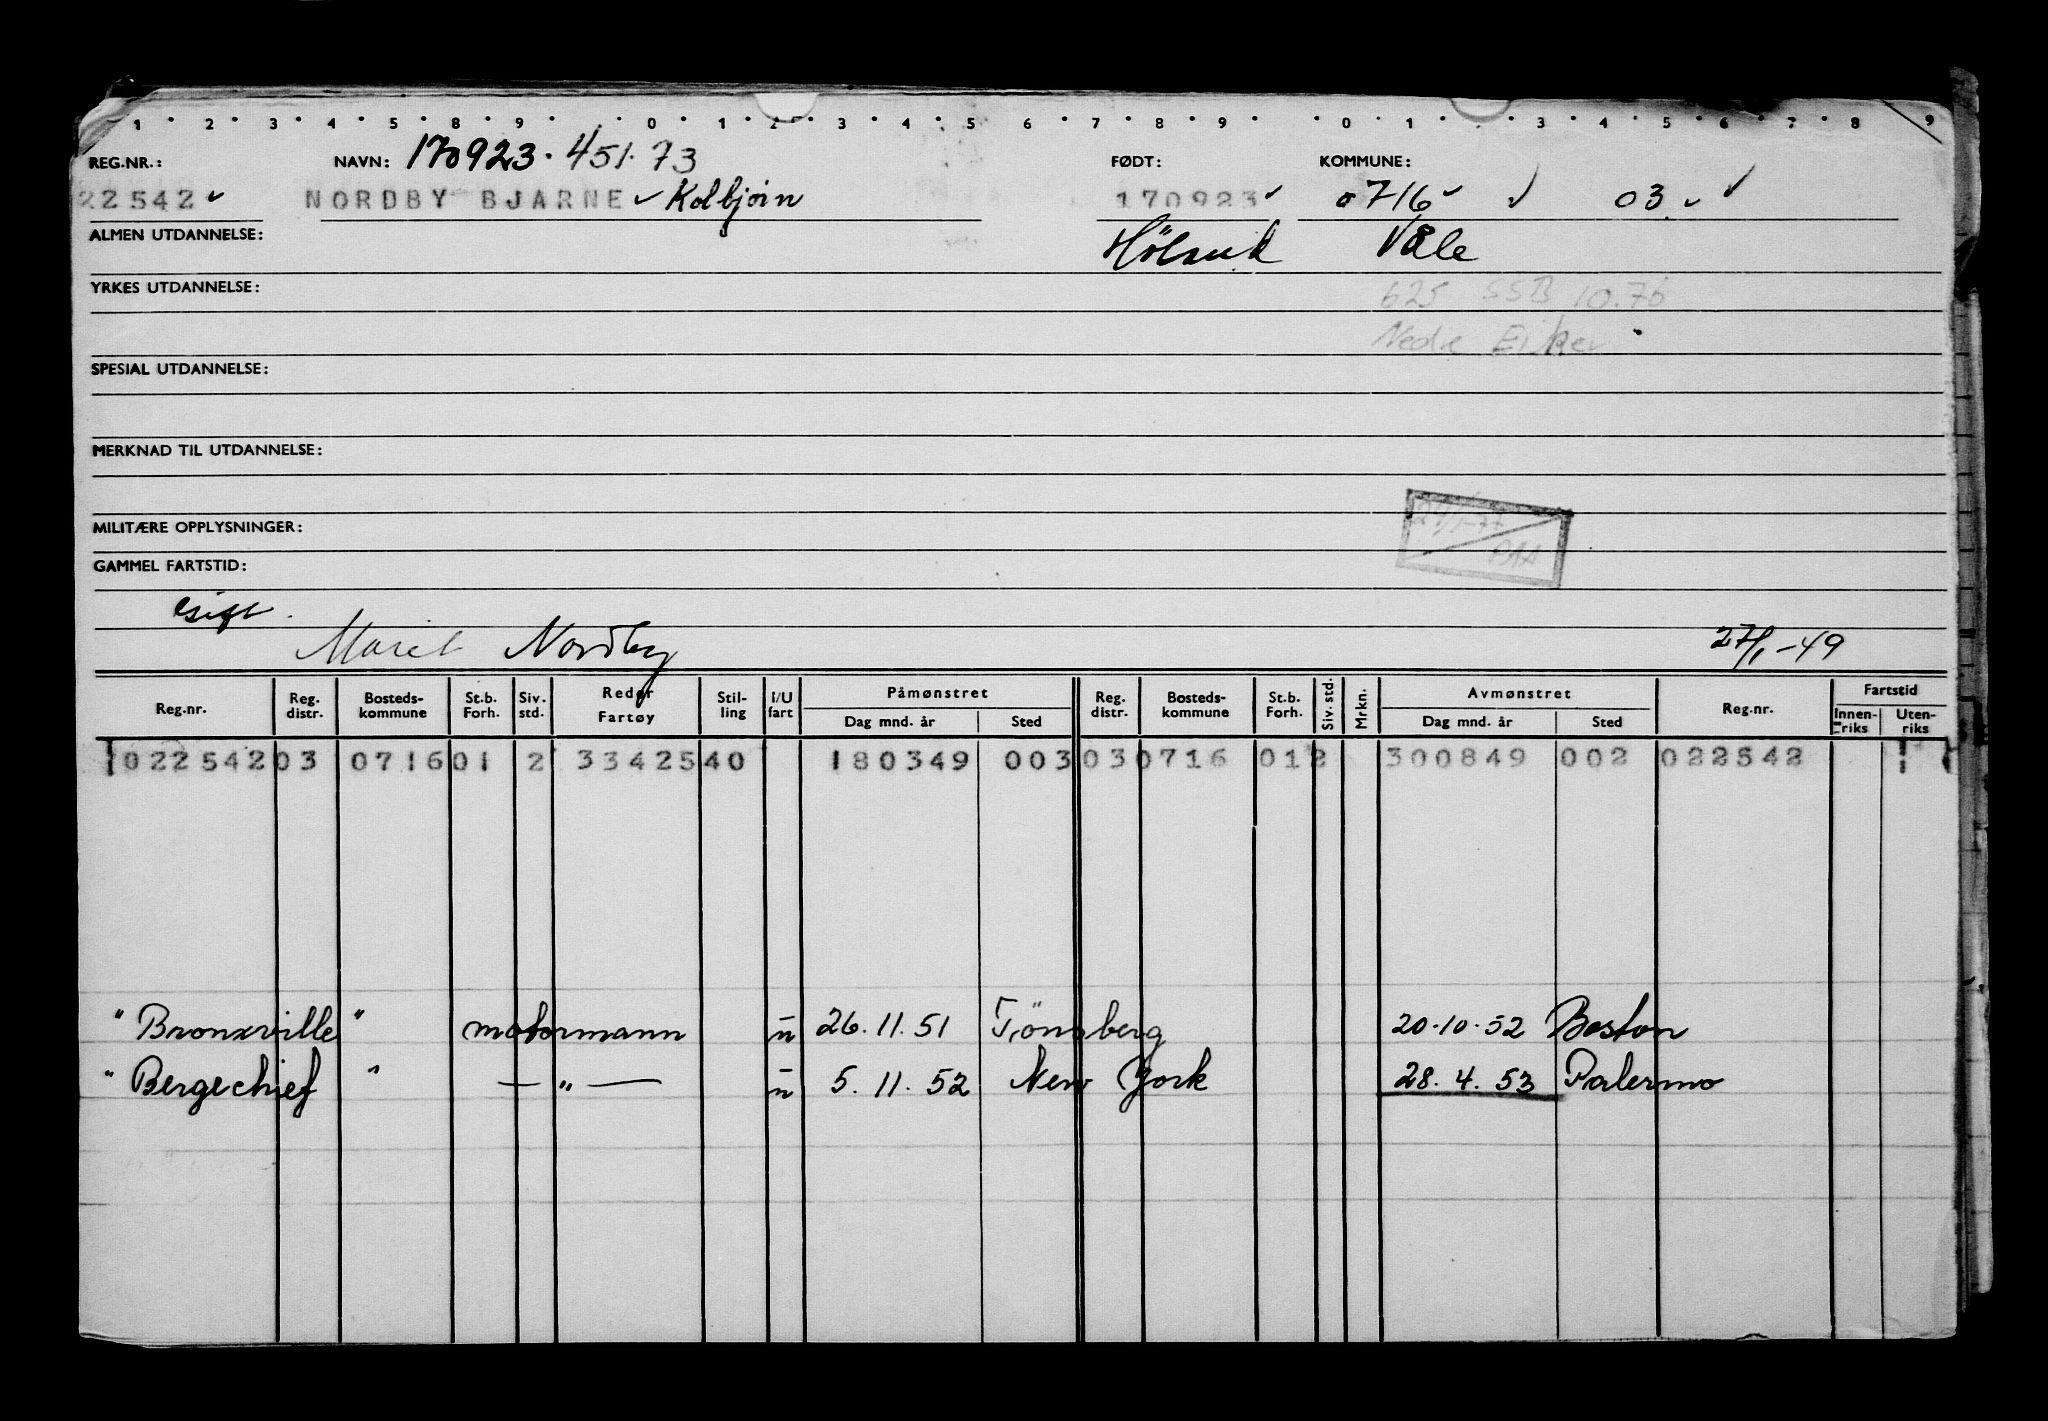 1 · 2 · 3 · 4 · 5 · 8 · 9 · · 0 · 1 · 2 · 3 · 4 · 5 6 · 7 · 8 · 9 · · 0 · 1 · · 3 · 4 · 5 · 6 · 7 · 8 · 9
REG.NR.: NAVN: 170923. 451.73 FØDT: KOMMUNE:
22542 ✓ NORDBY BJARNE ✓ Kolbjørn 170923 ✓ 0716 ✓ ✓ 03 ✓ ✓
ALMEN UTDANNELSE: Våle
YRKES UTDANNELSE: 625 SSB 10.76
Nedre Eiker
SPESIAL UTDANNELSE:
MERKNAD TIL UTDANNELSE:
MILITÆRE OPPLYSNINGER:
GAMMEL FARTSTID:
Marit Nordby 27/1-49
Reg.nr. Reg. distr. Bosteds-kommune St.b. Forh. Siv. std. Reder Fartøy Stil-ling I/U fart Påmønstret Dag mnd. år Sted Reg. distr. Bosteds-kommune St.b. Forh. Siv. std. Mrkn. Avmønstret Dag mnd. år Sted Reg.nr. Fartstid Innen-riks Uten-riks
022542 03 0716 01 2 33425 40 180349 003 03 0716 01 2 300849 002 022542
"Bronxville" motormann u 26.11.51 Tönsberg 20.10.52 Boston
"Bergechief" — " — u 5.11.52 New York 28.4.53 Palermo